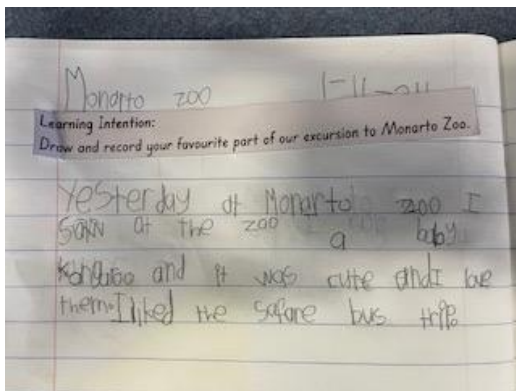 Monarto zoo
Learning Intention:
Draw and record your favourite part of our excursion to Monarto Zoo.
Yesterday at Monarto zoo I
saw at the zoo a baby
and it was cute and I love
them. I liked the safare bus trip.